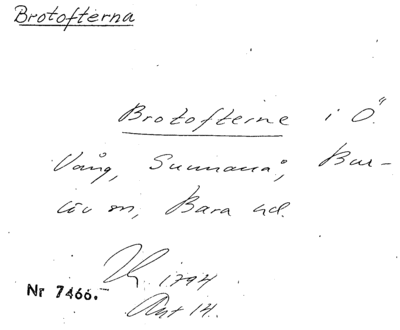 Brotofterna
Brotofterne i Ö.
Vång, Sunnanå, Bur-
löv sn, Bara hd.
1794
Nr 7466.
Akt 14.